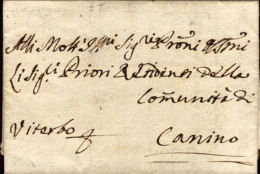 Alli Molt' Ill:ri Sig:ri Proñi Oss:mi
Li Sig:ri Priori Residenti della
Comunità di
Viterbo Canino